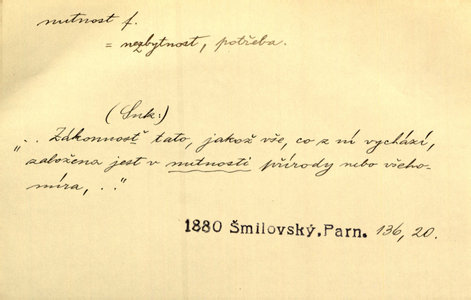 nutnost f.
= nezbytnost, potřeba.
(Snk:)
„.. Zákonnosť tato, jakož vše, co z ní vychází,
založena jest v nutnosti přírody nebo všeho-
míra, .."
1880 Šmilovský, Parn. 136, 20.